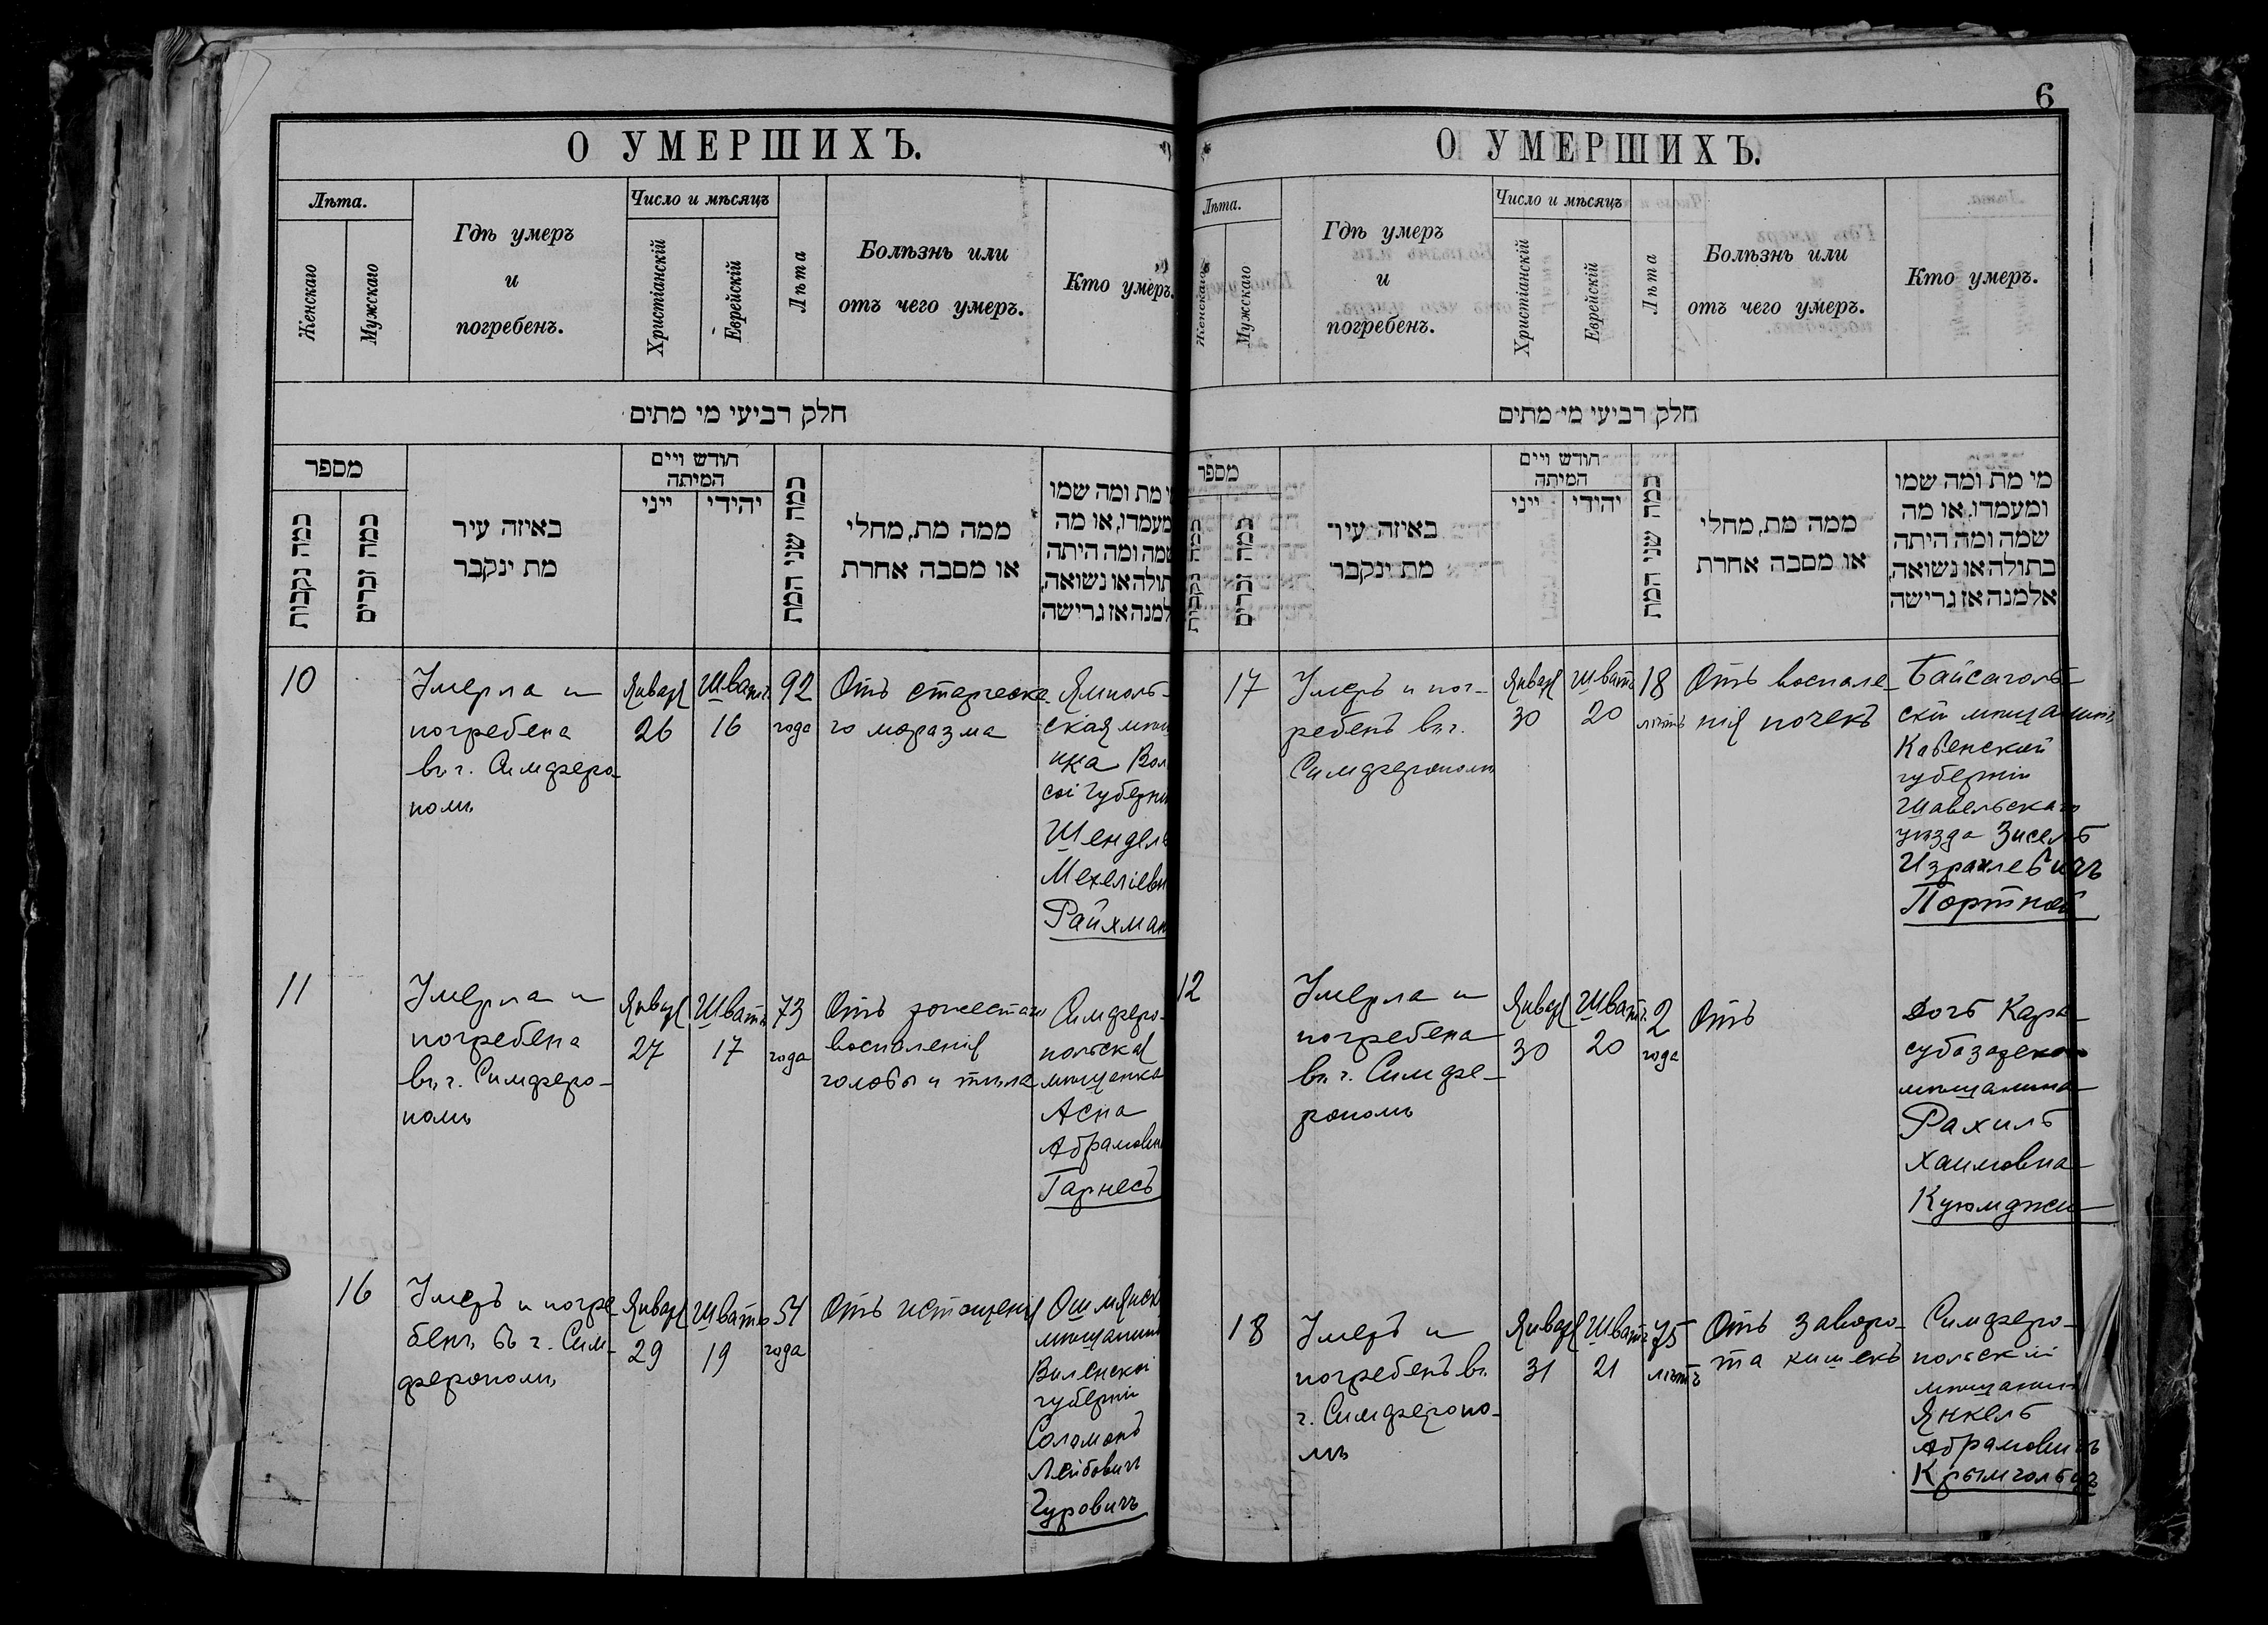 6
О УМЕРШИХЪ.
Лѣта.
Женскаго
Мужскаго
Гдѣ умеръ
и
погребенъ.
Число и мѣсяцъ
Христіанскій
Еврейскій
Лѣта
Болѣзнь или
отъ чего умеръ.
Кто умеръ.
חלק רביעי מי מתים
מספר
כמה נקבות
כמה זכרים
באיזה עיר
מת ינקבר
חודש ויים
המיתה
ייני
יהודי
כמה שני המת
ממה מת, מחלי
או מסבה אחרת
מי מת ומה שמו
מעמדו, או מה
שמה ומה היתה
תולה או נשואה,
למנה אז גרישה
10
Умерла и
погребена
въ г. Симферо-
полѣ
Января
26
Шватъ
16
92
года
Отъ старческа-
го маразма
Ямполь-
ская мѣщ
нка Вол
сой губерни
Шендель
Мехеліевн
Райхман
11
Умерла и
погребена
въ г. Симферо-
полѣ
Января
27
Шватъ
17
73
года
Отъ рожестаго
воспаленія
головы и тѣла
Симферо-
польская
мѣщанка
Асна
Абрамовн
Гарнесъ
16
Умеръ и погре-
бенъ въ г. Сим-
ферополѣ
Января
29
Шватъ
19
54
года
Отъ истощенія
Ошмянск
мѣщанинъ
Виленской
губерніи
Соломонъ
Лейбовичъ
Гуровичъ
О УМЕРШИХЪ.
Лѣта.
Женскаго
Мужскаго
Гдѣ умеръ
и
погребенъ.
Число и мѣсяцъ
Христіанскій
Еврейскій
Лѣта
Болѣзнь или
отъ чего умеръ.
Кто умеръ.
חלק רביעי מי מתים
מספר
כמה נקבות
כמה זכרים
באיזה עיר
מת ינקבר
חודש ויים
המיתה
ייני
יהודי
כמה שני המת
ממה מת, מחלי
או מסבה אחרת
מי מת ומה שמו
ומעמדו, או מה
שמה ומה היתה
בתולה או נשואה,
אלמנה אז גרישה
17
Умеръ и пог-
ребенъ въ г.
Симферополѣ
Января
30
Шватъ
20
18
лѣтъ
Отъ воспале-
нія почекъ
Байсаголь-
скій мѣщанинъ
Ковенской
губерніи
Шавельскаго
уѣзда Зисель
Израилевичъ
Портной
12
Умерла и
погребена
въ г. Симфе-
рополѣ
Января
30
Шватъ
20
2
года
Отъ
Дочь Кара-
субазарскаго
мѣщанина
Рахиль
Хаимовна
Куюмджи
18
Умеръ и
погребенъ въ
г. Симферопо-
лѣ
Января
31
Шватъ
21
75
лѣтъ
Отъ заворо-
та кишекъ
Симферо-
польскій
мѣщанинъ
Янкель
Абрамовичъ
Крымгольцъ